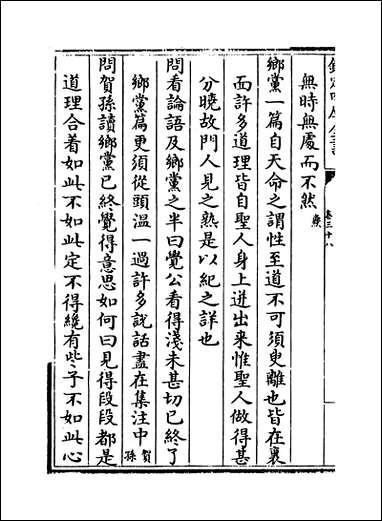 欽定四庫全書
卷三十八
無時無處而不然 燾
鄉黨一篇自天命之謂性至道不可須臾離也皆在裏
面許多道理皆自聖人身上迸出來惟聖人做得甚
分曉故門人見之熟是以紀之詳也
問看論語及鄉黨之半曰覺公看得淺未甚切已終了
鄉黨篇更須從頭温一過許多説話盡在集注中 賀孫
問賀孫讀鄉黨已終覺得意思如何曰見得段段都是
道理合着如此不如此定不得纔有些子不如此心